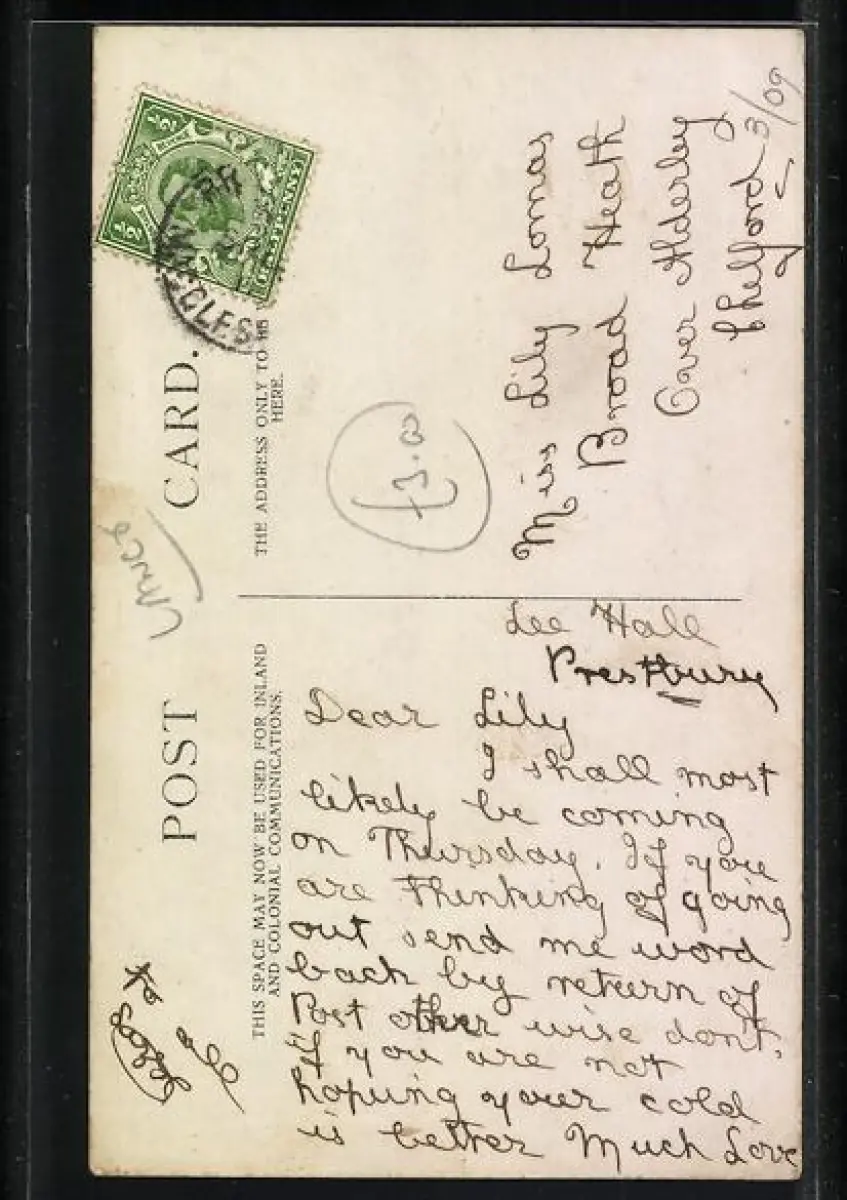 POST CARD.
THIS SPACE MAY NOW BE USED FOR INLAND
AND COLONIAL COMMUNICATIONS.
THE ADDRESS ONLY TO BE
HERE.
½ ½
HALFPENNY
CCLES
£3.00
3/09
Miss Lily Lomas
Broad Heath
Over Alderley
Chelford
Lee Hall
Prestbury
Dear Lily
I shall most
likely be coming
on Thursday. If you
are thinking of going
out send me word
back by return of
Post other wise dont,
if you are not
hoping your cold
is better Much Love
to all